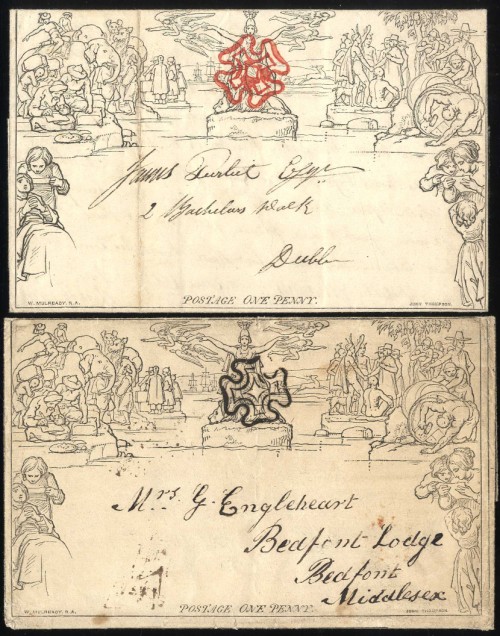 James Turbit Esqr
2 Bachelors Walk
Dublin
W. MULREADY, R.A.
POSTAGE ONE PENNY.
JOHN THOMPSON.
Mrs. G. Engleheart
Bedfont Lodge
Bedfont
Middlesex
W. MULREADY, R.A.
POSTAGE ONE PENNY.
JOHN THOMPSON.